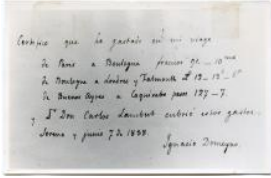 Certifico que he gastado en mi viage
de Paris a Boulogne francos 91 - 10
de Boulogne a Londres y Falmouth £ 13 - 13 - 6
de Buenos Ayres a Coquimbo pesos 127 - 7.
y Dn Don Carlos Lambert cubrió estos gastos.
Serena y junio 7 de 1838.
Ignacio Domeyko